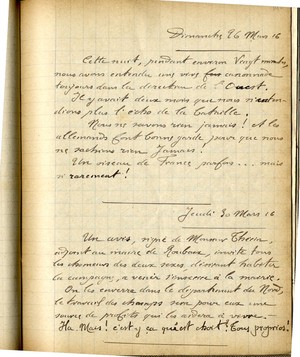 Dimanche 26 Mars 16
Cette nuit, pendant environ vingt minutes,
nous avons entendu une vive canonnade
toujours dans la direction de l'Ouest.
Il y avait deux mois que nous n'enten-
dions plus l'écho de la bataille.
Nous ne savons rien jamais! Et les
allemands font bonne garde pour que nous
ne sachions rien jamais.
Un oiseau de France parfois... mais
si rarement!
Jeudi 30 Mars 16
Un avis, signé de Monsieur Thérin,
adjoint au maire de Roubaix, invite tous
les chômeurs des deux sexes désirant habiter
la campagne, à venir s'inscrire à la mairie.
On les enverra dans le département du Nord,
le travail des champs sera pour eux une
source de profits qui les aidera à vivre.—
Ha Mais! c'est y ça qu'est choit! Tous proprios!